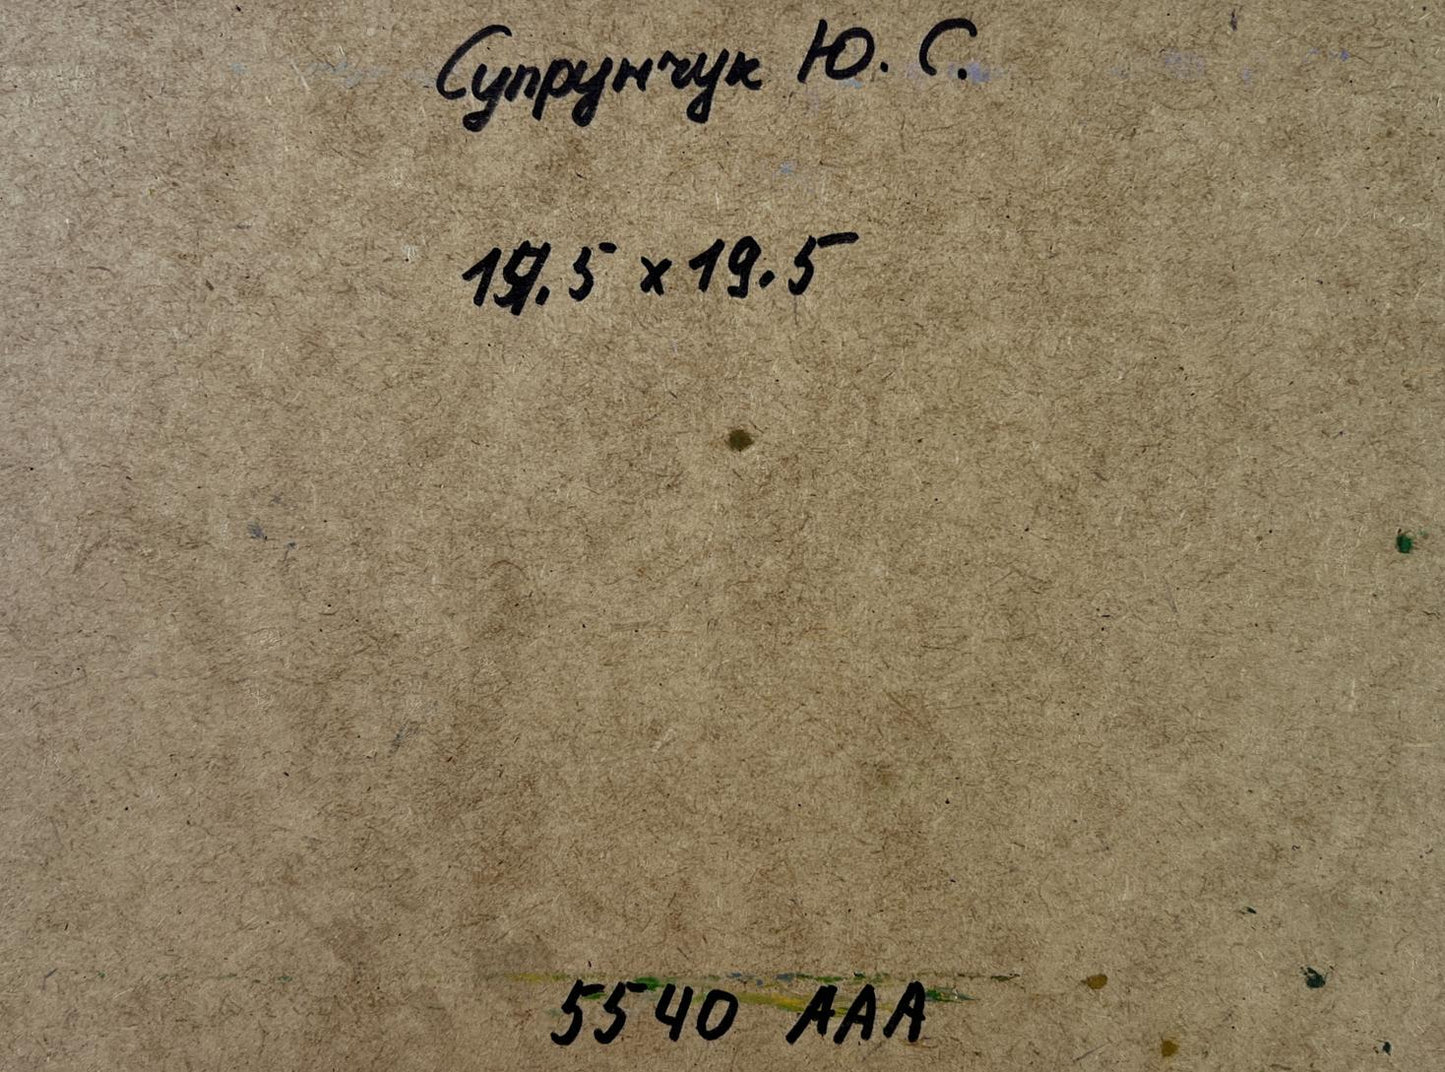 Супрунчук Ю. С.
x 19.5
5540 ААА